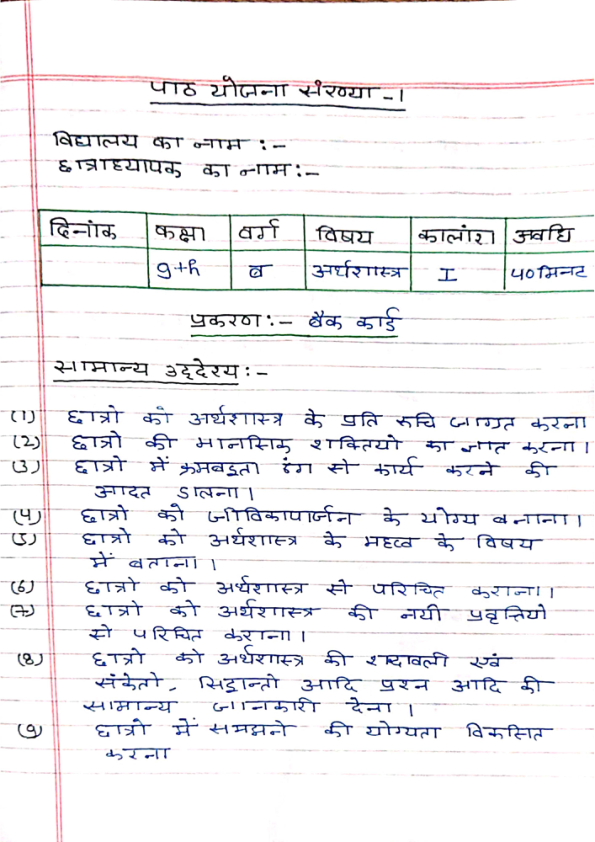 पाठ योजना संख्या -1
विद्यालय का नाम :-
छात्राध्यापक का नाम:-
दिनांक कक्षा वर्ग विषय कालांश अवधि
9th ब अर्थशास्त्र I 40 मिनट
प्रकरण:- बैंक कार्ड
सामान्य उद्देश्य:-
(1) छात्रो को अर्थशास्त्र के प्रति रूचि जाग्रत करना
(2) छात्रो की मानसिक शक्तियो का ज्ञात करना।
(3) छात्रो में क्रमबद्धता ढंग से कार्य करने की
आदत डालना।
(4) छात्रो को जीविकापार्जन के योग्य बनाना।
(5) छात्रो को अर्थशास्त्र के महत्व के विषय
में बताना।
(6) छात्रो को अर्थशास्त्र से परिचित कराना।
(7) छात्रो को अर्थशास्त्र की नयी प्रवृत्तियो
से परिचित कराना।
(8) छात्रो को अर्थशास्त्र की शब्दावली एवं
संकेतो, सिद्वान्तो आदि प्रश्न आदि की
सामान्य जानकारी देना।
(9) छात्रो में समझने की योग्यता विकसित
करना